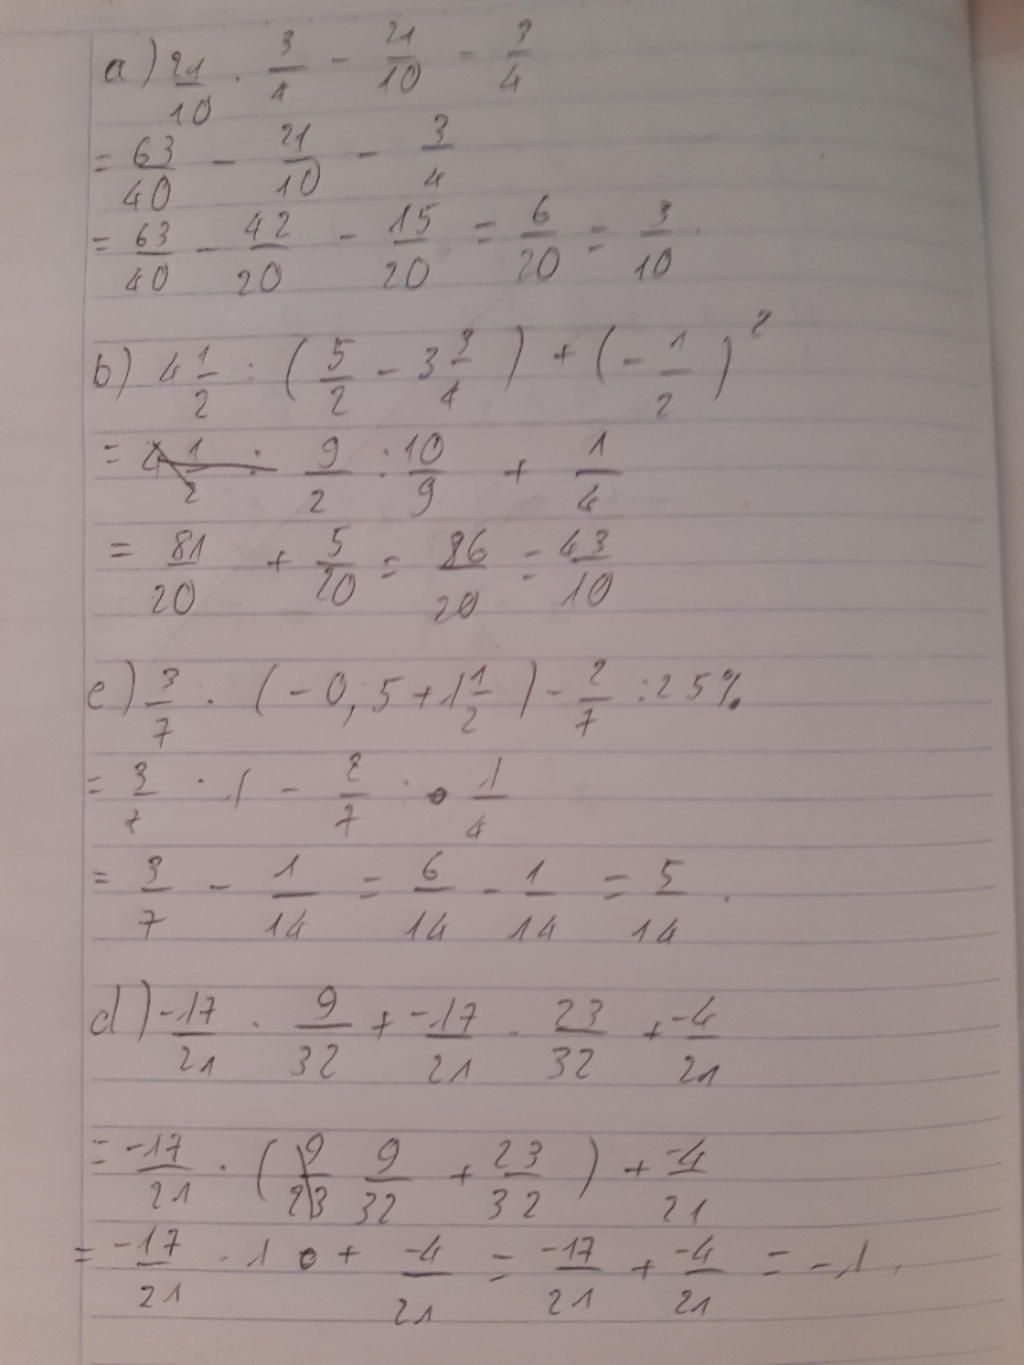 a) 21/10 . 3/4 - 21/10 - 3/4
= 63/40 - 21/10 - 3/4
= 63/40 - 42/20 - 15/20 = 6/20 = 3/10.
b) 4 1/2 : (5/2 - 3 3/4) + (-1/2)²
= 9/2 : 10/9 + 1/4
= 81/20 + 5/20 = 86/20 = 43/10
c) 3/7 . (-0,5 + 1 1/2) - 2/7 : 25%
= 3/7 . 1 - 2/7 : 1/4
= 3/7 - 1/14 = 6/14 - 1/14 = 5/14.
d) -17/21 . 9/32 + -17/21 . 23/32 + -4/21
= -17/21 . (9/32 + 23/32) + -4/21
= -17/21 . 1 + -4/21 = -17/21 + -4/21 = -1.